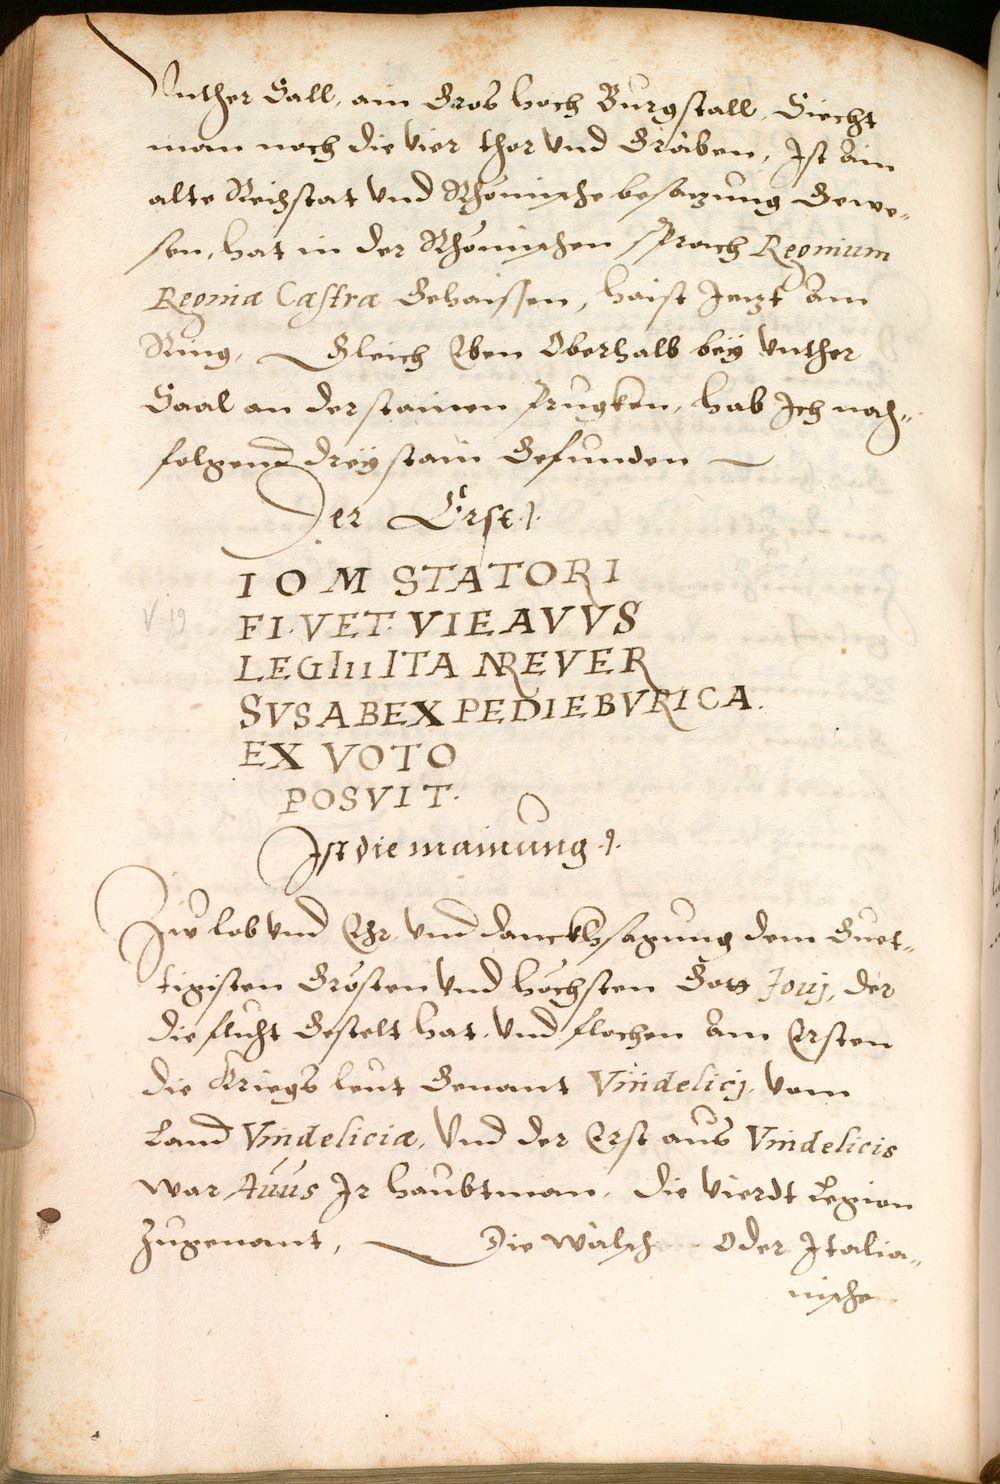 Unther Sall, ain Gros hoch Burgstall, Siecht
man noch die vier thor vnd Gräben, Ist ain
alte Reichstat vnd Rhömische besatzung Gewe-
sen, hat in der Rhömischen sprach Reginum
Regina Castra Gehaissen, haist Jetzt am
Ring, Gleich Eben Oberhalb beÿ vnther
Saal an der stainen prugken, hab Ich nach-
folgend dreÿ stain Gefunden
Der Erst.
I O M STATORI
FI. VET. VIE AVVS
LEG IIII ITA NR EVER
SVS AB EX PEDIE BVRICA.
EX VOTO
POSVIT.
V 19
Ist die mainung.
Zw lob vnd Ehr, vnd danckhsagung dem Guet-
tigisten Grösten vnd höchsten Gott Jouj, der
die flucht Gestelt hat, vnd flochen am Ersten
die Kriegs leut Genant Vindelicj, vom
Land Vindeliciæ, Vnd der Erst aus Vindelicis
war Auus Ir haubtman, die vierdt Legion
Zugenant, Die Wälsch Oder Italia-
nische